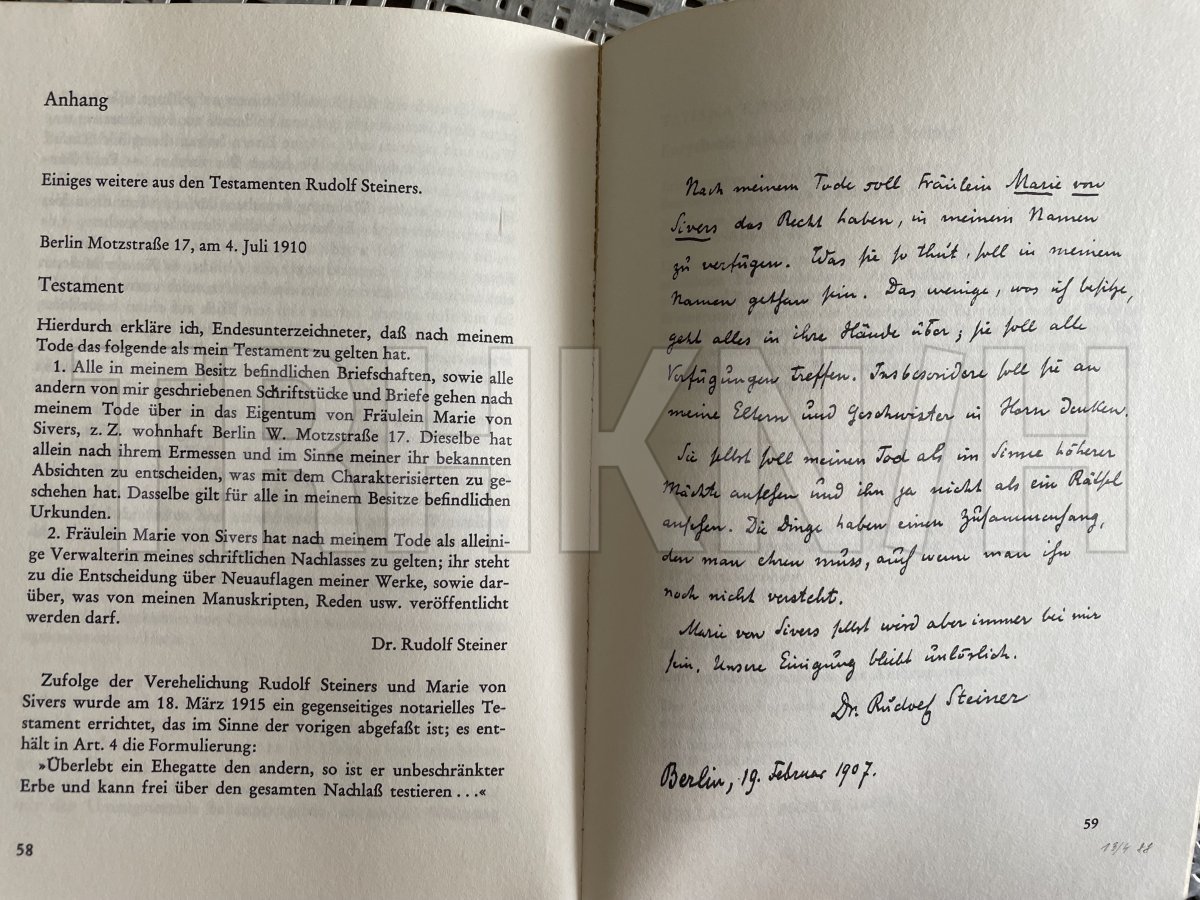 Anhang
Einiges weitere aus den Testamenten Rudolf Steiners.
Berlin Motzstraße 17, am 4. Juli 1910
Testament
Hierdurch erkläre ich, Endesunterzeichneter, daß nach meinem
Tode das folgende als mein Testament zu gelten hat.
1. Alle in meinem Besitz befindlichen Briefschaften, sowie alle
andern von mir geschriebenen Schriftstücke und Briefe gehen nach
meinem Tode über in das Eigentum von Fräulein Marie von
Sivers, z. Z. wohnhaft Berlin W. Motzstraße 17. Dieselbe hat
allein nach ihrem Ermessen und im Sinne meiner ihr bekannten
Absichten zu entscheiden, was mit dem Charakterisierten zu ge-
schehen hat. Dasselbe gilt für alle in meinem Besitze befindlichen
Urkunden.
2. Fräulein Marie von Sivers hat nach meinem Tode als alleini-
ge Verwalterin meines schriftlichen Nachlasses zu gelten; ihr steht
zu die Entscheidung über Neuauflagen meiner Werke, sowie dar-
über, was von meinen Manuskripten, Reden usw. veröffentlicht
werden darf.
Dr. Rudolf Steiner
Zufolge der Verehelichung Rudolf Steiners und Marie von
Sivers wurde am 18. März 1915 ein gegenseitiges notarielles Te-
stament errichtet, das im Sinne der vorigen abgefaßt ist; es ent-
hält in Art. 4 die Formulierung:
»Überlebt ein Ehegatte den andern, so ist er unbeschränkter
Erbe und kann frei über den gesamten Nachlaß testieren . . .«
58
Nach meinem Tode soll Fräulein Marie von
Sivers das Recht haben, in meinem Namen
zu verfügen. Was sie so thut, soll in meinem
Namen gethan sein. Das wenige, was ich besitze,
geht alles in ihre Hände über; sie soll alle
Verfügungen treffen. Insbesondere soll sie an
meine Eltern und Geschwister in Horn denken.
Sie selbst soll meinen Tod als im Sinne höherer
Mächte ansehen und ihn ja nicht als ein Rätsel
ansehen. Die Dinge haben einen Zusammenhang,
den man ehren muss, auch wenn man ihn
noch nicht versteht.
Marie von Sivers selbst wird aber immer bei mir
sein. Unsere Einigung bleibt unlöslich.
Dr. Rudolf Steiner
Berlin, 19. Februar 1907.
59
13/4 88